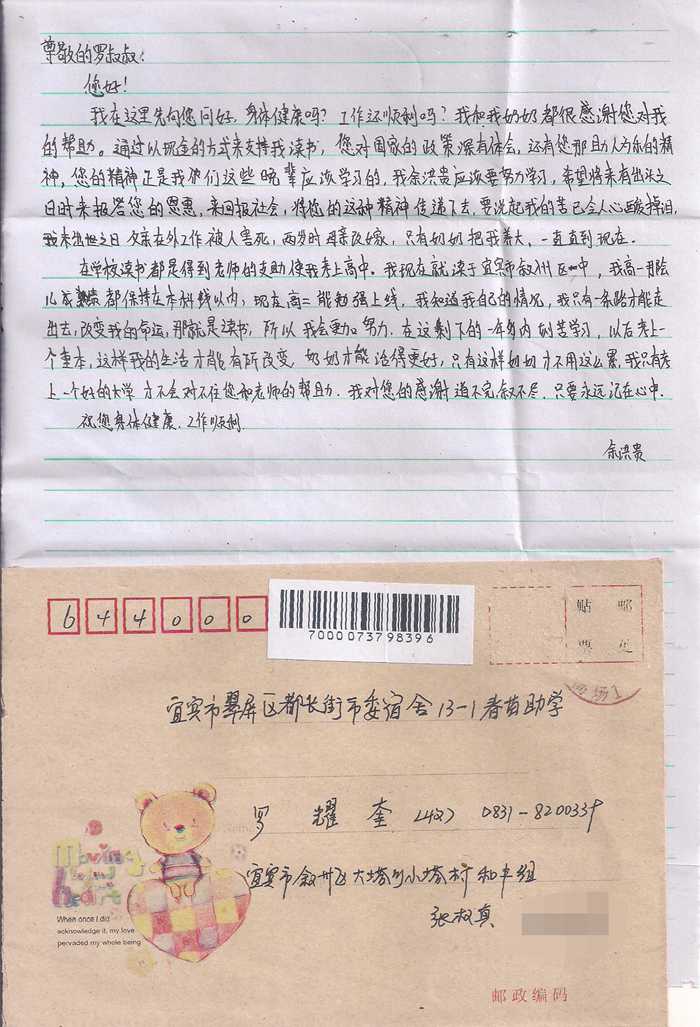 尊敬的罗叔叔：
您好！
我在这里先向您问好，身体健康吗？工作还顺利吗？我和我奶奶都很感谢您对我
的帮助。通过以现金的方式来支持我读书，您对国家的政策深有体会，还有您那助人为乐的精
神，您的精神正是我们这些晚辈应该学习的，我余洪贵应该要努力学习，希望将来有出头之
日时来报答您的恩惠，来回报社会，将您的这种精神传递下去，要说起我的苦已会人心酸掉泪，
我未出世之日父亲在外工作被人害死，两岁时母亲改嫁，只有奶奶把我养大，一直直到现在。
在学校读书都是得到老师的支助使我考上高中。我现在就读于宜宾市叙州区一中，我高一
成绩都保持在本科线以内，现在高二能勉强上线，我知道我自己的情况，我只有一条路才能走
出去，改变我的命运，那就是读书，所以我会更加努力．在这剩下的一年多内刻苦学习，以后考上一
个重本，这样我的生活才能有所改变．奶奶才能活得更好，只有这样奶奶才不用这么累，我只有考
上一个好的大学才不会对不住您和老师的帮助．我对您的感谢道不完叙不尽．只要永远记在心中．
祝您身体健康．工作顺利
余洪贵
644000
7000073798396
贴 邮
票 处
宜宾市翠屏区都长街市委宿舍13-1春苗助学
罗 耀 奎 (收) 0831-8200339
宜宾市叙州区大塔乡小塔村和丰组
张叔真
Moving
heart
When once I did
acknowledge it, my love
pervaded my whole being
邮政编码